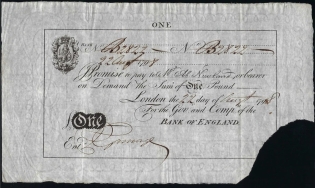 ONE
No B2822 No B2822
22 Augt 1798
I Promise to pay to Mr Abm Newland or bearer
on Demand the Sum of One Pound
London the 22 day of Augt 1798
For the Govr and Compa of the
BANK OF ENGLAND.
One
Entd